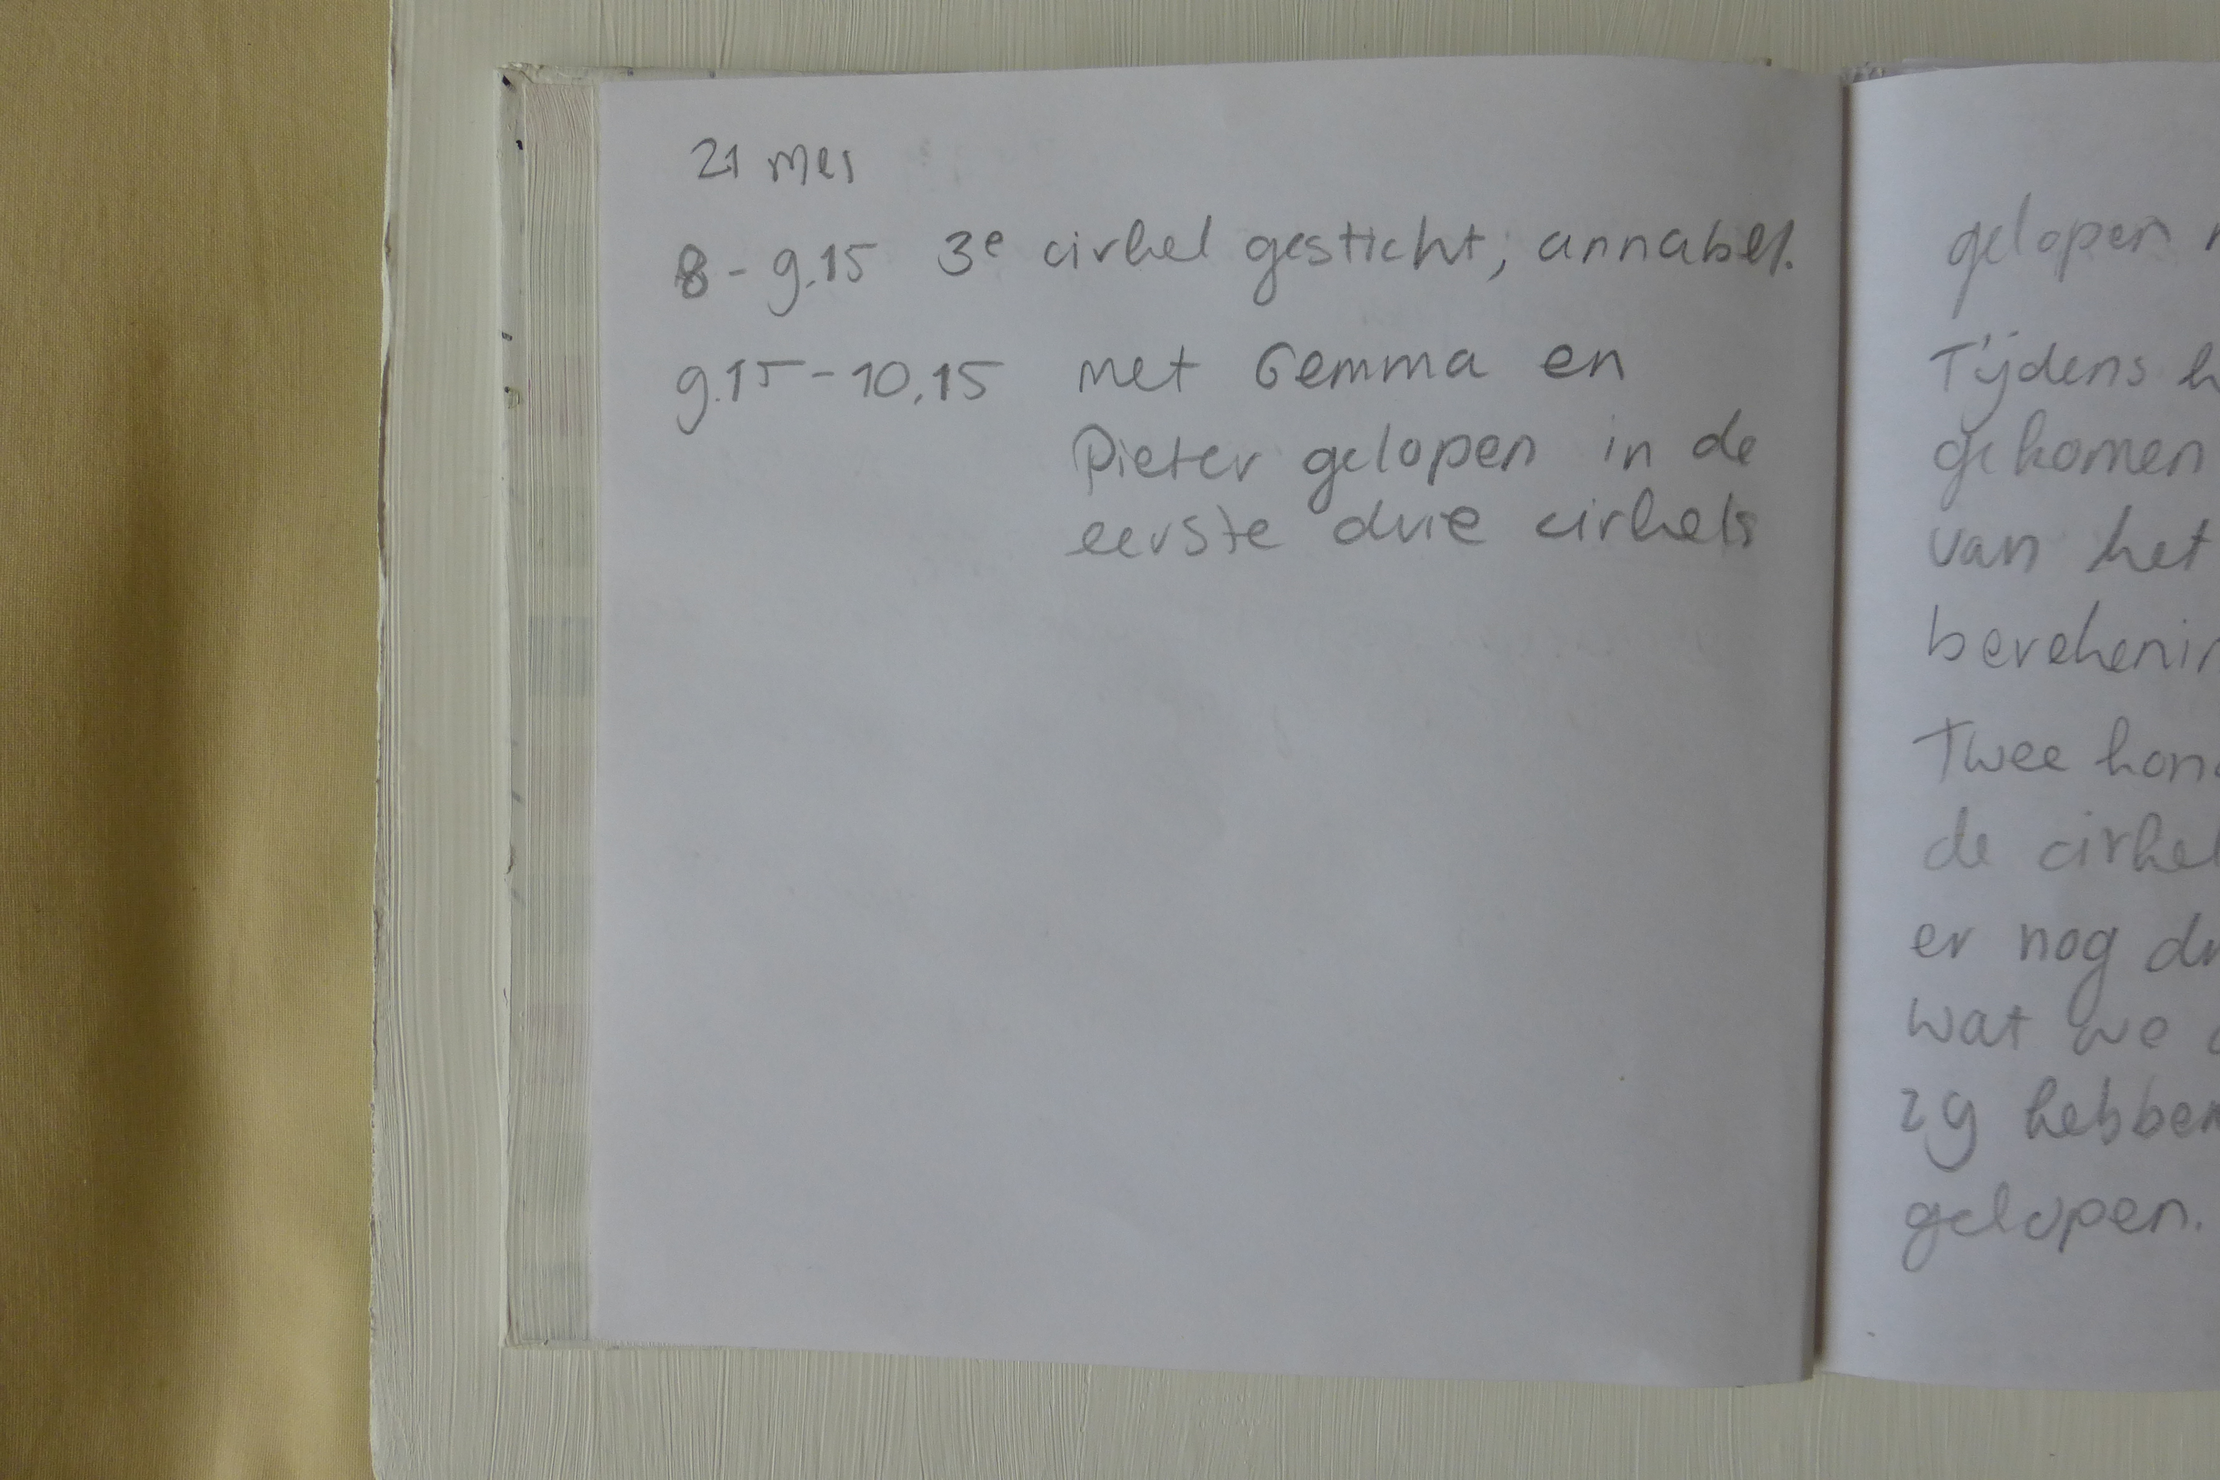 21 mei
8 - 9.15 3e cirkel gesticht, annabel.
9.15 - 10,15 met Gemma en
Pieter gelopen in de
eerste drie cirkels
gelopen
Tijdens
gekomen
van het
Twee
de
er nog
wat we
29
gelopen.